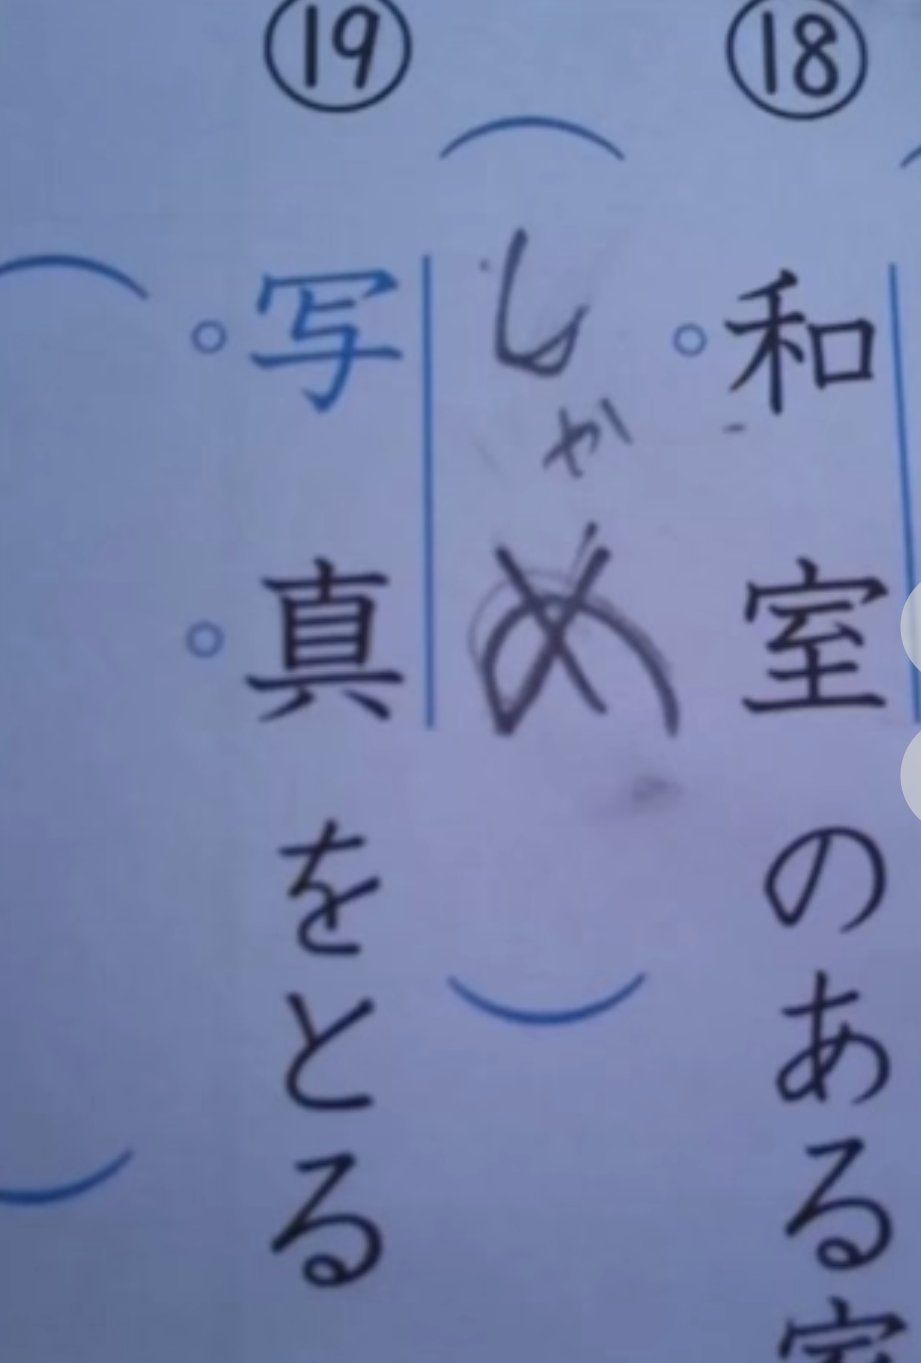 ⑱
和室のある室
しゃめ
⑲
写真をとる